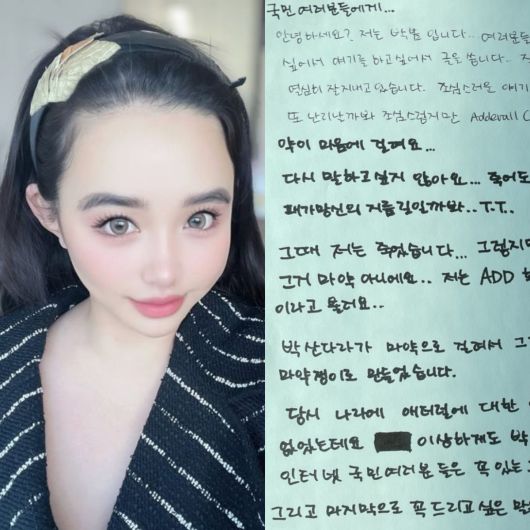 국민 여러분들에게...
안녕하세요? 저는 박봄 입니다.. 여러분들
싶어서 얘기를 하고싶어서 글을 씁니다.
열심히 잘지내고있습니다. 조심스러운 얘기
또 난리난까봐 조심스럽지만 Adderall
약이 마음에 걸려요...
다시 말하고싶지 않아요... 죽어도
패가망신의 지름길일까봐.. T.T..
그때 저는 죽었습니다... 그렇지만
그거 마약 아니에요.. 저는 ADD
이라고 불려요..
박산다라가 마약으로 걸려서
마약쟁이로 만들었습니다.
당시 나라에 애더럴에 대한
없었는데요 이상하게도 박
인터넷 국민여러분들은 꼭 있는
그리고 마지막으로 꼭 드리고 싶은 말